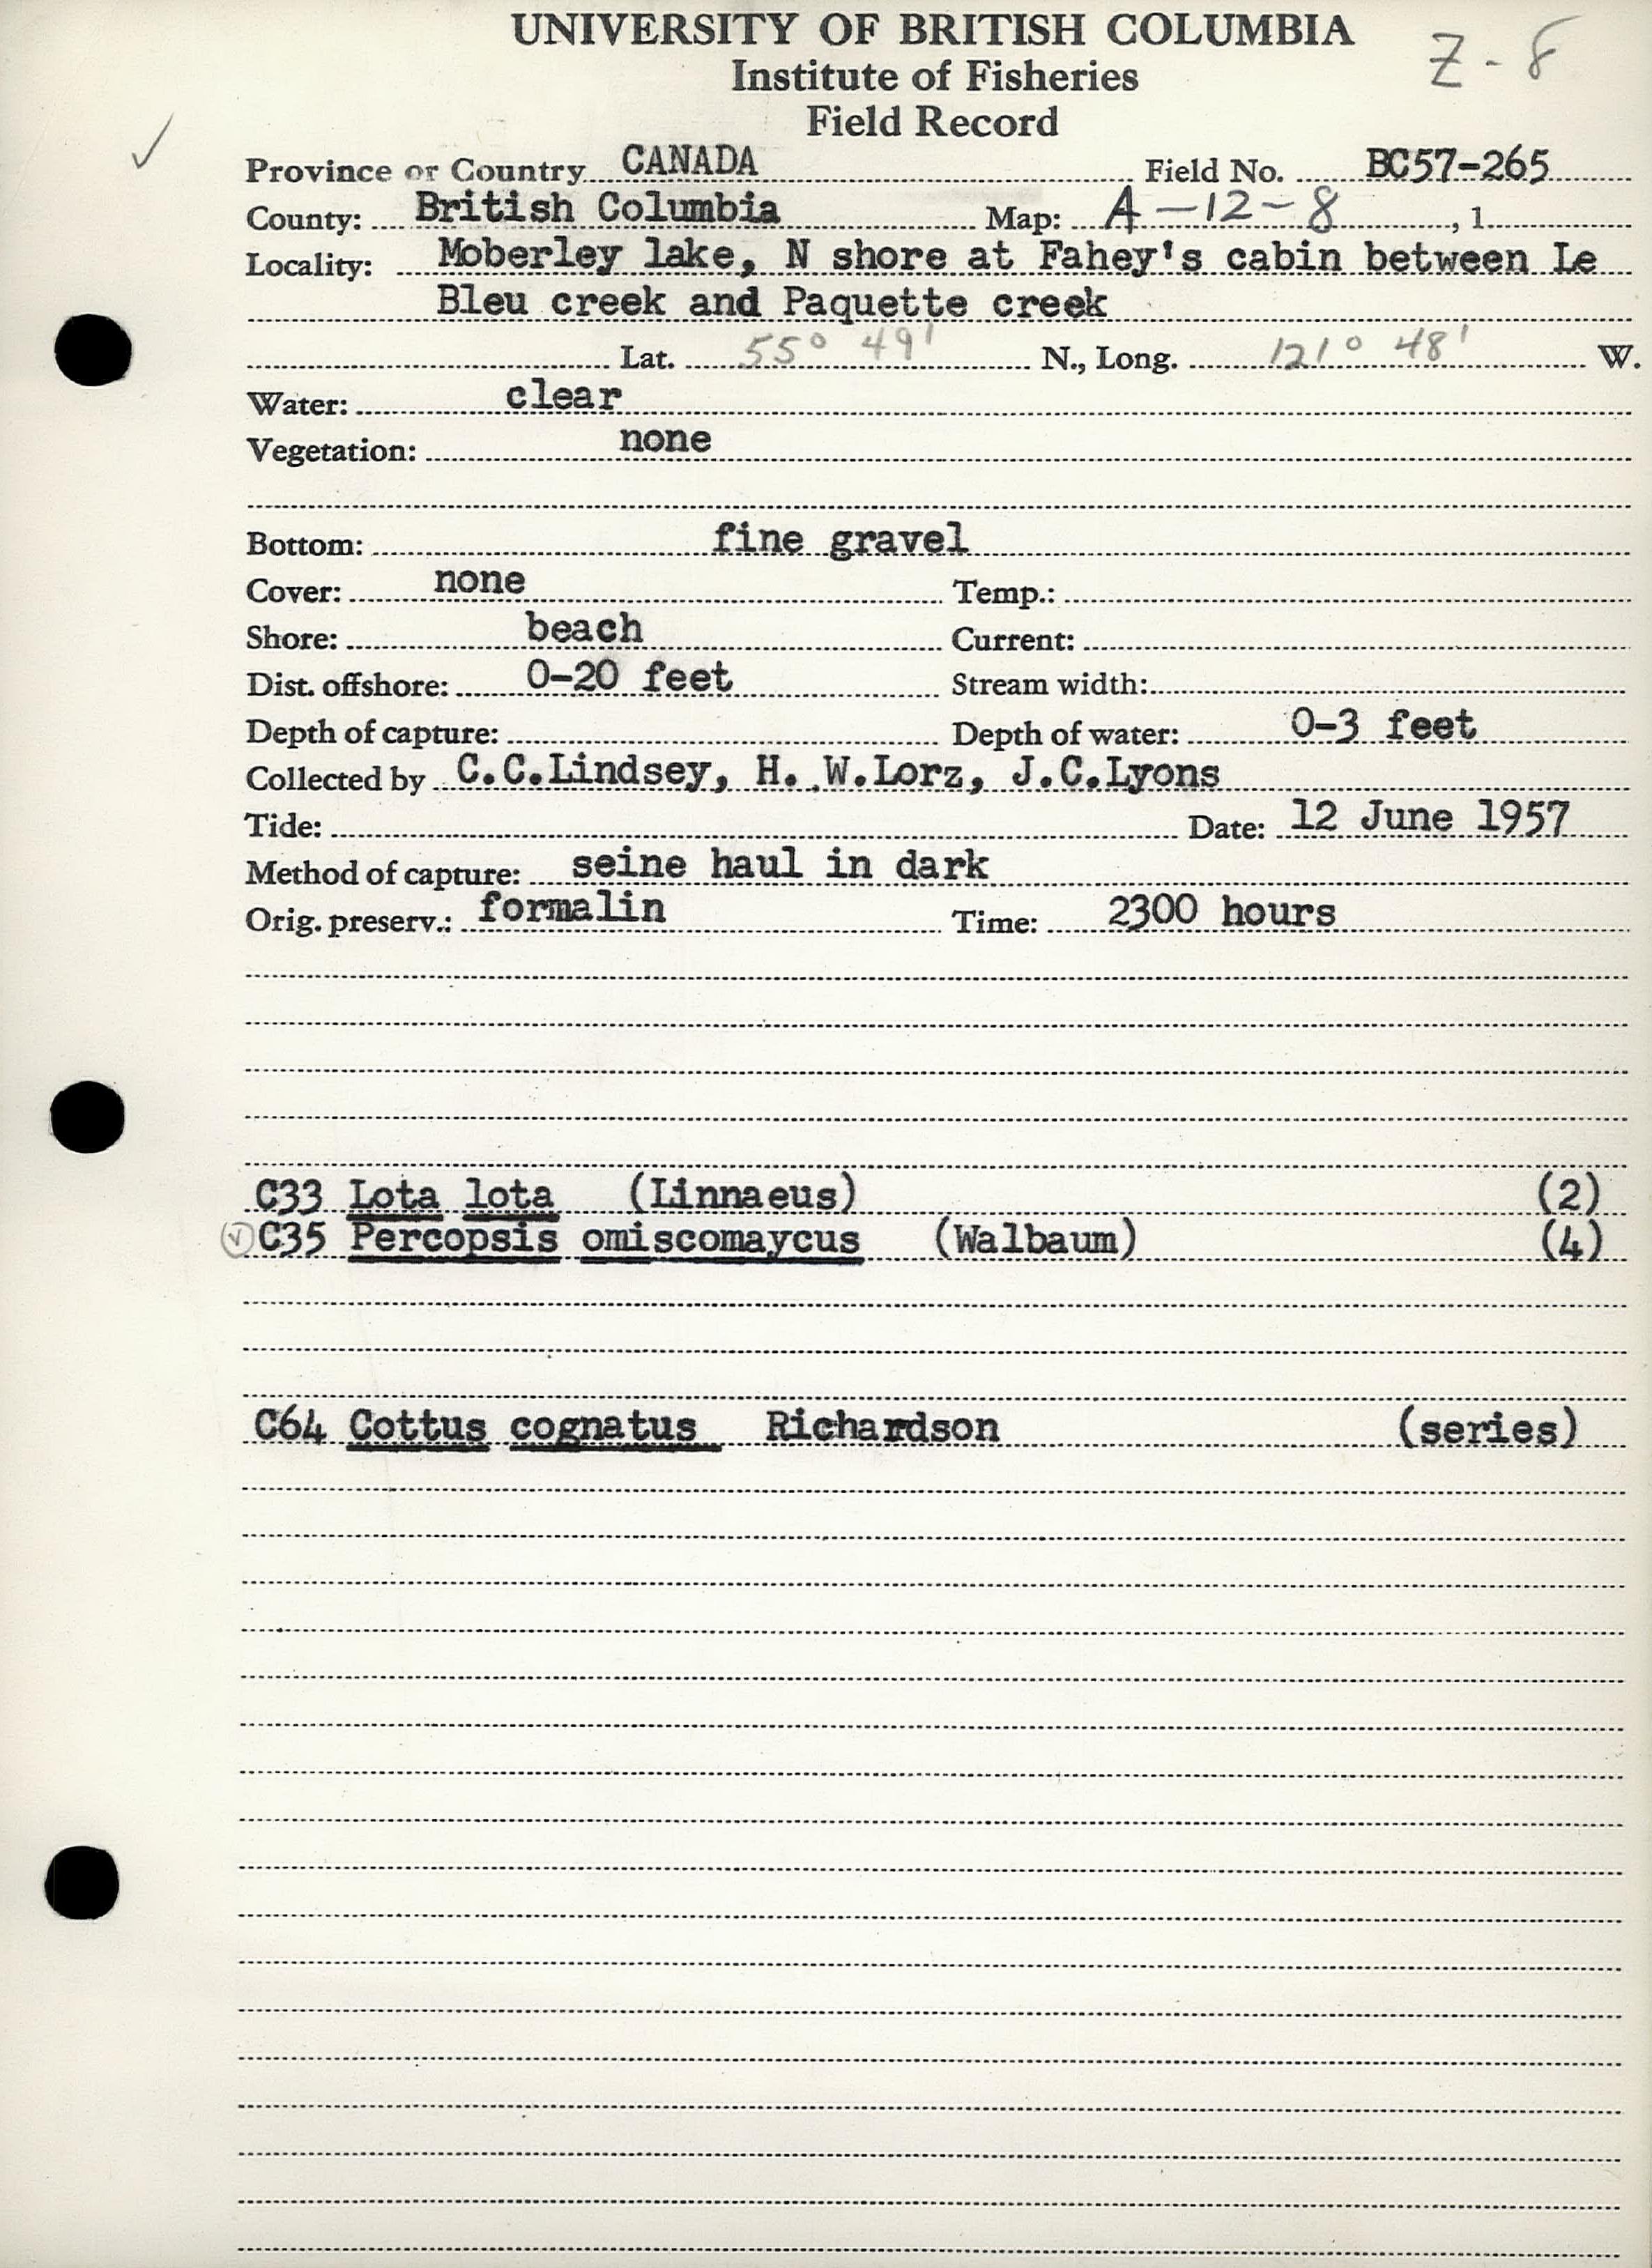 UNIVERSITY OF BRITISH COLUMBIA
Z - 8
Institute of Fisheries
Field Record
✓
Province or Country CANADA Field No. BC57-265
County: British Columbia Map: A-12-8, 1
Locality: Moberley lake, N shore at Fahey's cabin between Le
Bleu creek and Paquette creek
Lat. 55° 49' N., Long. 121° 48' W.
Water: clear
Vegetation: none
Bottom: fine gravel
Cover: none Temp.:
Shore: beach Current:
Dist. offshore: 0-20 feet Stream width:
Depth of capture: Depth of water: 0-3 feet
Collected by C.C.Lindsey, H. W.Lorz, J.C.Lyons
Tide: Date: 12 June 1957
Method of capture: seine haul in dark
Orig. preserv.: formalin Time: 2300 hours
C33 Lota lota (Linnaeus) (2)
✓ C35 Percopsis omiscomaycus (Walbaum) (4)
C64 Cottus cognatus Richardson (series)